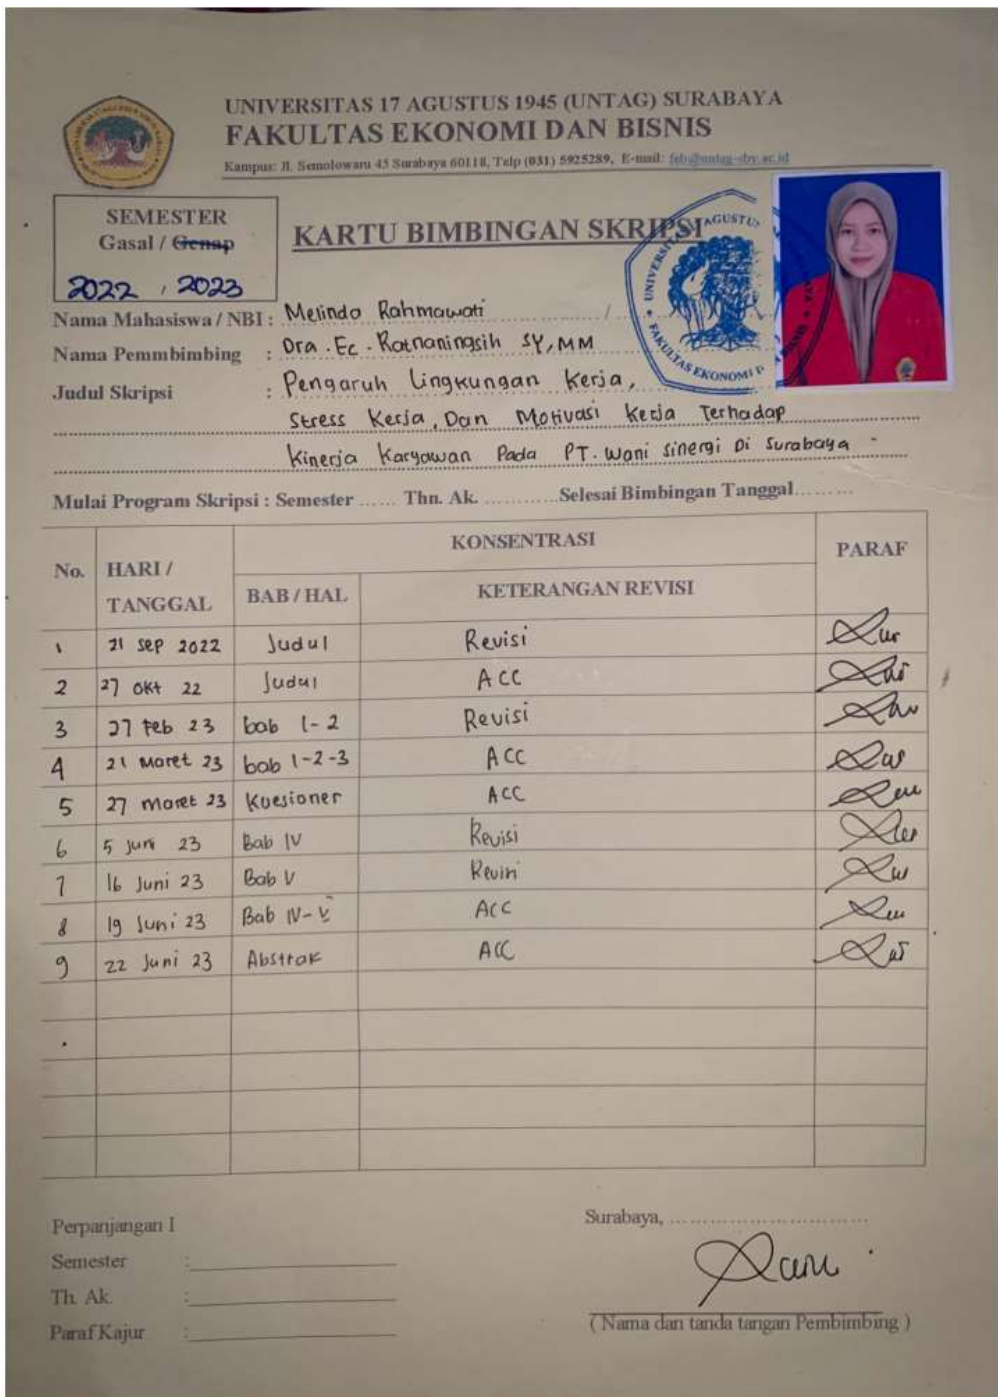 UNIVERSITAS 17 AGUSTUS 1945 (UNTAG) SURABAYA
FAKULTAS EKONOMI DAN BISNIS
Kampus: Jl. Semolowaru 45 Surabaya 60118, Telp (031) 5925289, E-mail: feb@untag-sby.ac.id
SEMESTER
Gasal / Genap
2022 / 2023
KARTU BIMBINGAN SKRIPSI
Nama Mahasiswa / NBI : Melinda Rahmawati /
Nama Pemmbimbing : Dra. Ec. Ratnaningsih SY, MM
Judul Skripsi : Pengaruh Lingkungan Kerja,
Stress Kerja, Dan Motivasi Kerja Terhadap
Kinerja Karyawan Pada PT. Wani Sinergi Di Surabaya -
Mulai Program Skripsi : Semester ...... Thn. Ak. ............Selesai Bimbingan Tanggal.........
No. HARI / TANGGAL KONSENTRASI PARAF
BAB / HAL KETERANGAN REVISI
1 21 Sep 2022 Judul Revisi
2 27 Okt 22 Judul ACC
3 27 Feb 23 bab 1-2 Revisi
4 21 Maret 23 bab 1-2-3 ACC
5 27 Maret 23 Kuesioner ACC
6 5 Juni 23 Bab IV Revisi
7 16 Juni 23 Bab V Revisi
8 19 Juni 23 Bab IV-V ACC
9 22 Juni 23 Abstrak ACC
Perpanjangan I
Semester :
Th. Ak. :
Paraf Kajur :
Surabaya, ..............................
( Nama dan tanda tangan Pembimbing )